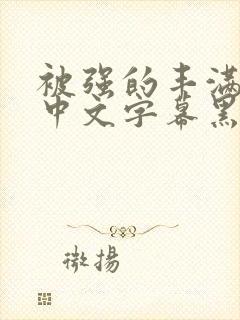 被强的丰满
中文字幕黑
微揚